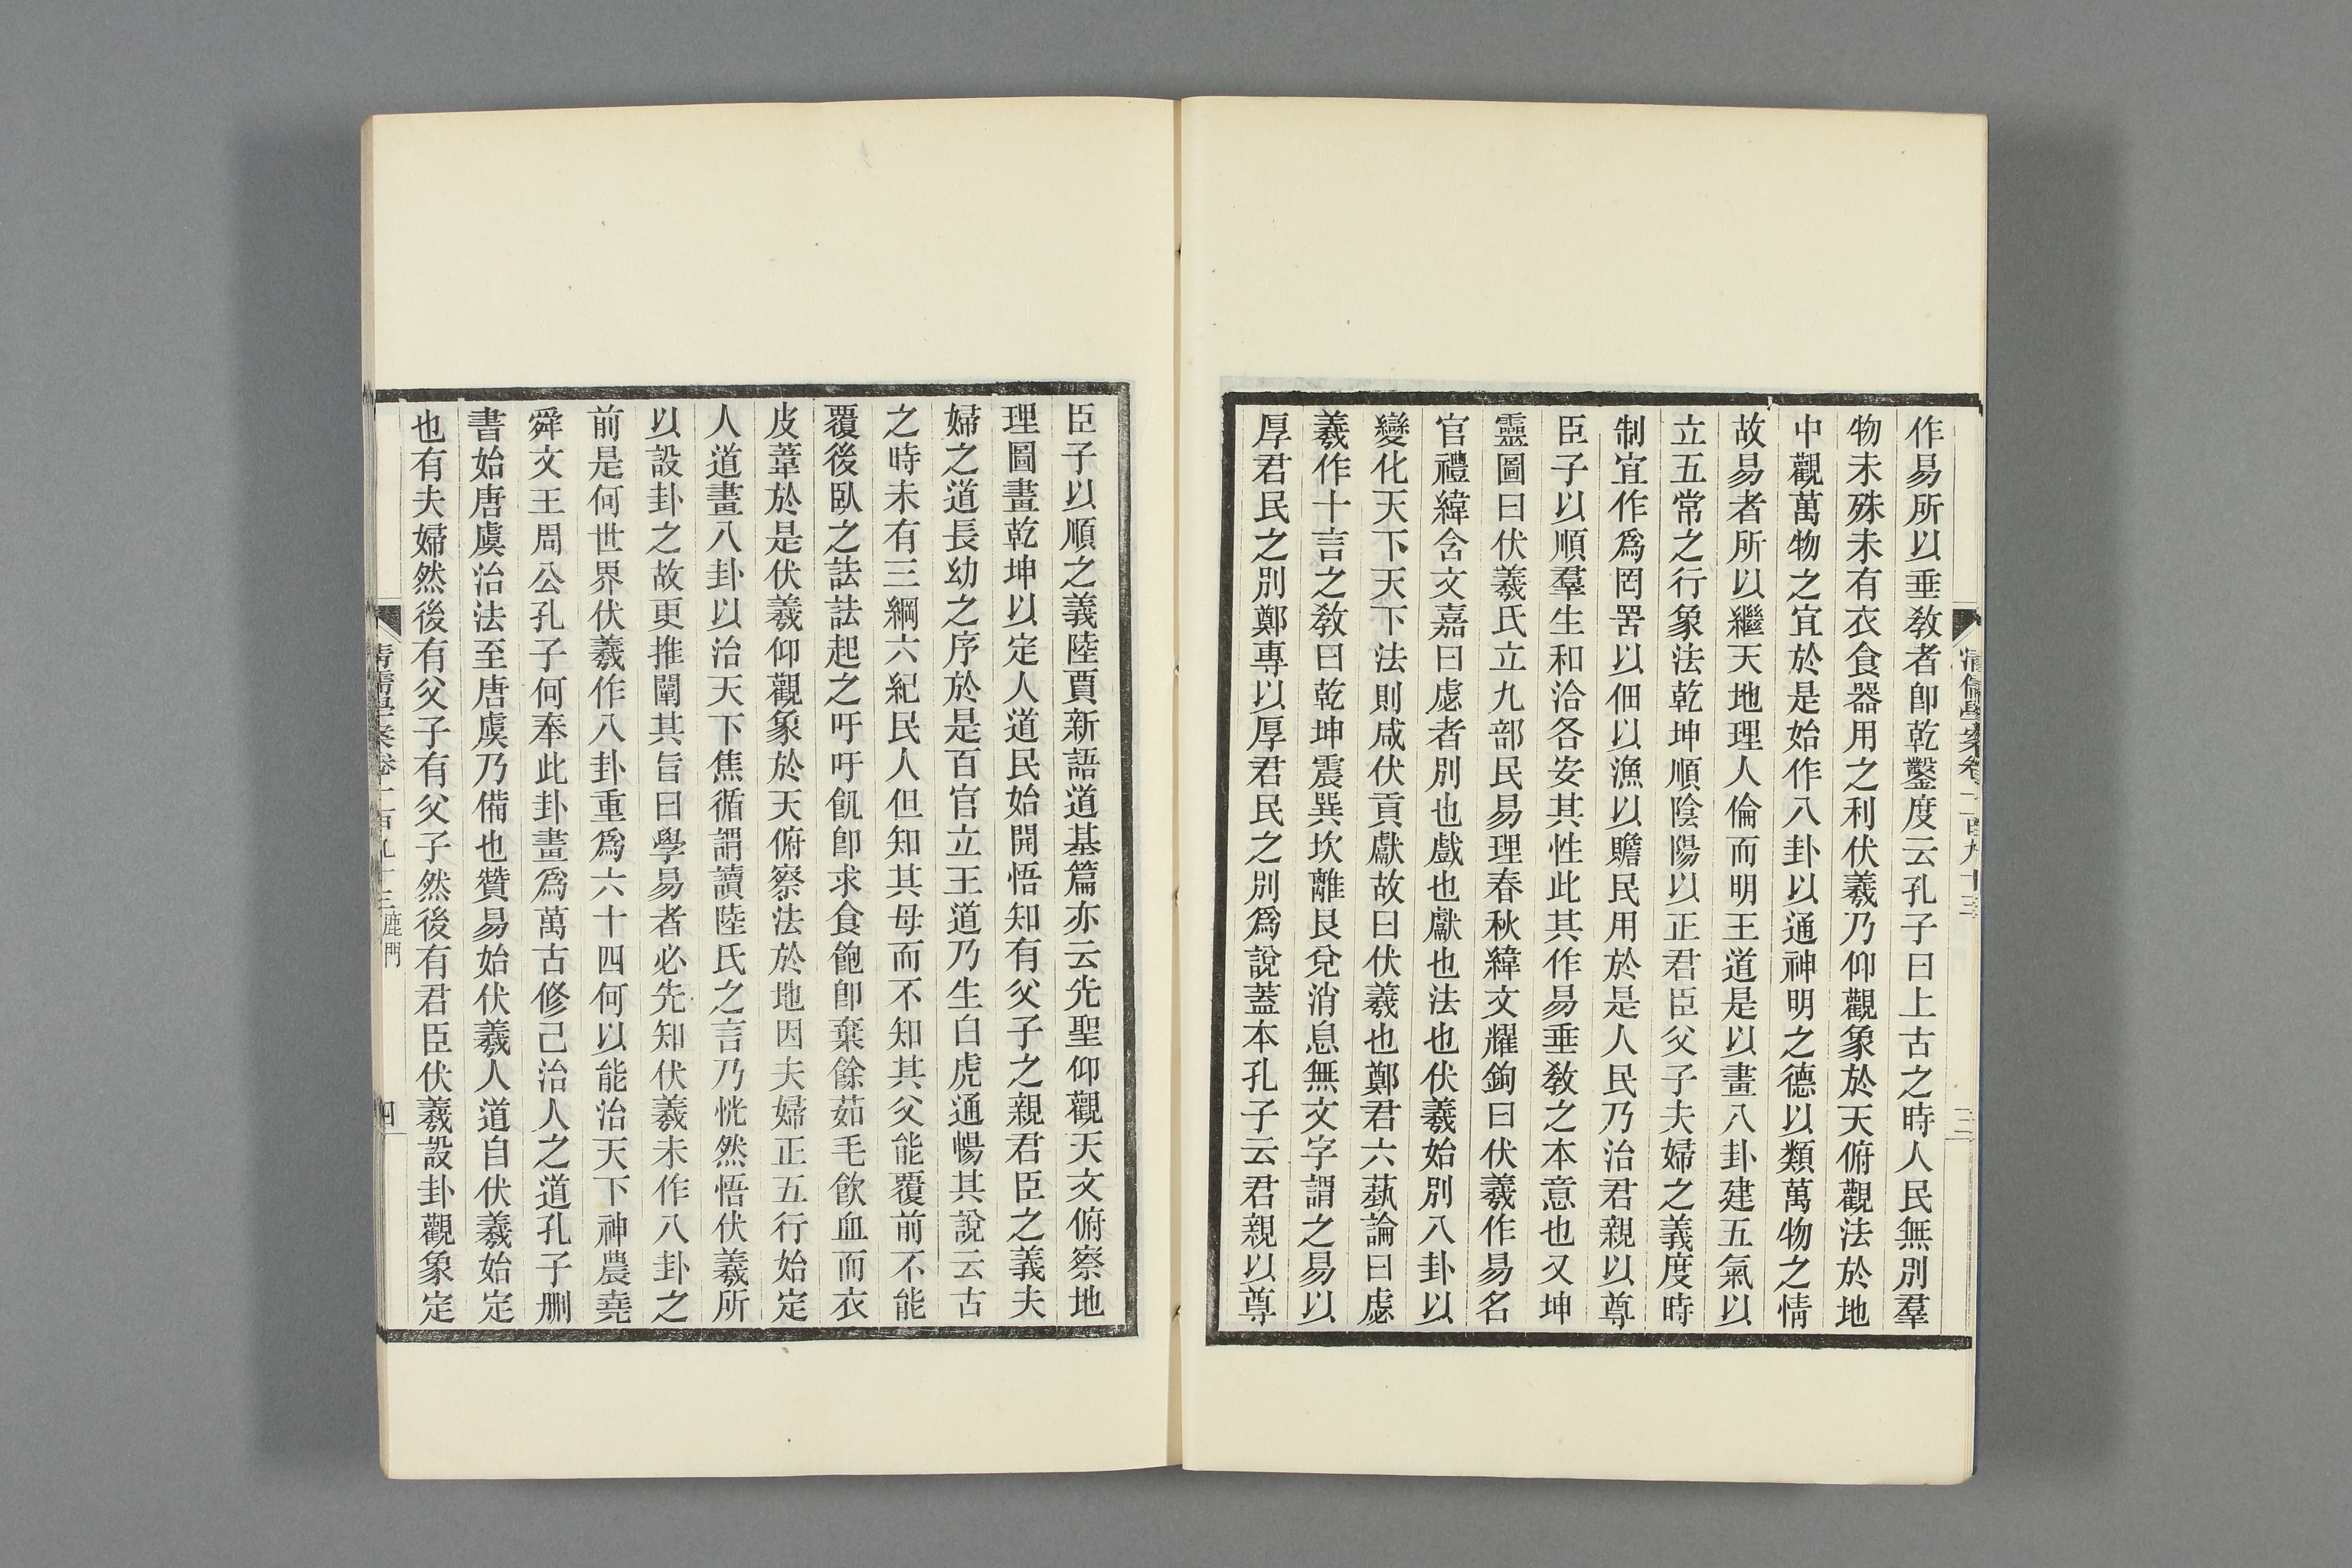 作易所以垂敎者卽乾鑿度云孔子曰上古之時人民無別羣
物未殊未有衣食器用之利伏羲乃仰觀象於天俯觀法於地
中觀萬物之宜於是始作八卦以通神明之德以類萬物之情
故易者所以繼天地理人倫而明王道是以畫八卦建五氣以
立五常之行象法乾坤順陰陽以正君臣父子夫婦之義度時
制宜作爲罔罟以佃以漁以贍民用於是人民乃治君親以尊
臣子以順羣生和洽各安其性此其作易垂敎之本意也又坤
靈圖曰伏羲氏立九部民易理春秋緯文耀鉤曰伏羲作易名
官禮緯含文嘉曰虙者別也戲也獻也法也伏羲始別八卦以
變化天下天下法則咸伏貢獻故曰伏羲也鄭君六藝論曰虙
羲作十言之敎曰乾坤震巽坎離艮兌消息無文字謂之易以
厚君民之別鄭專以厚君民之別爲說蓋本孔子云君親以尊
臣子以順之義陸賈新語道基篇亦云先聖仰觀天文俯察地
理圖畫乾坤以定人道民始開悟知有父子之親君臣之義夫
婦之道長幼之序於是百官立王道乃生白虎通暢其說云古
之時未有三綱六紀民人但知其母而不知其父能覆前不能
覆後臥之詓詓起之吁吁飢卽求食飽卽棄餘茹毛飮血而衣
皮葦於是伏羲仰觀象於天俯察法於地因夫婦正五行始定
人道畫八卦以治天下焦循謂讀陸氏之言乃恍然悟伏羲所
以設卦之故更推闡其旨曰學易者必先知伏羲未作八卦之
前是何世界伏羲作八卦重爲六十四何以能治天下神農堯
舜文王周公孔子何奉此卦畫爲萬古修己治人之道孔子刪
書始唐虞治法至唐虞乃備也贊易始伏羲人道自伏羲始定
也有夫婦然後有父子有父子然後有君臣伏羲設卦觀象定
清儒學案卷一百九十三 鹿門
四